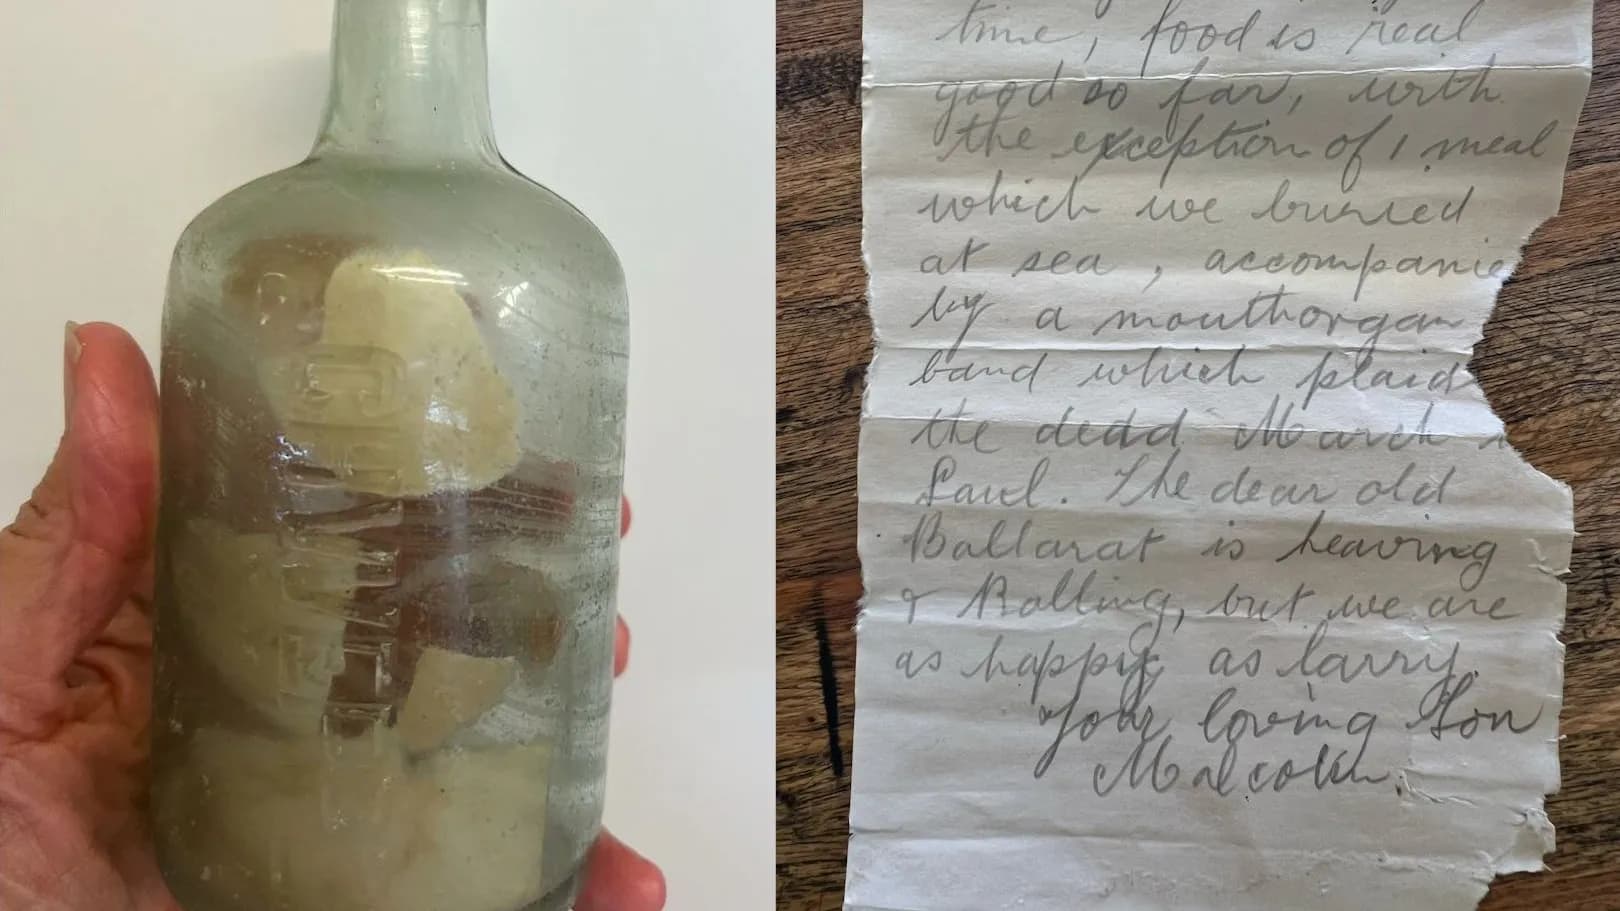 time, food is real
good so far, with
the exception of 1 meal
which we buried
at sea, accompanie
by a mouthorgan
band which plaid
the dead March
Saul. The dear old
Ballarat is heaving
& Rolling, but we are
as happy as larry.
Your loving Son
Malcolm.